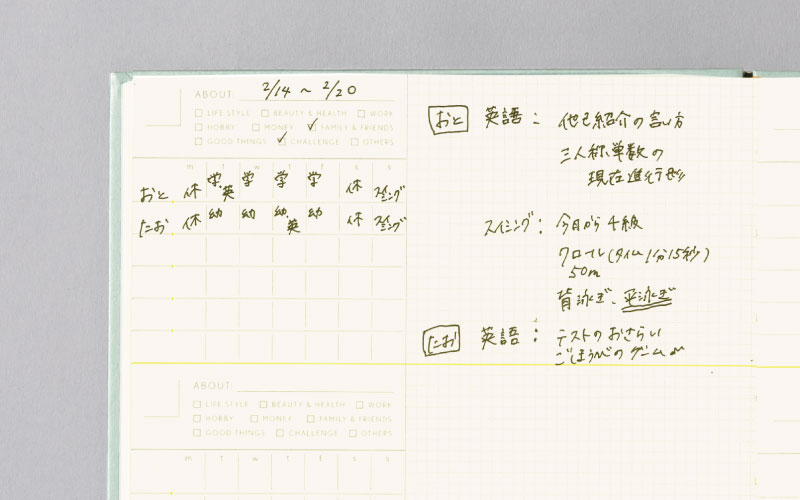 ABOUT: 2/14 ~ 2/20
LIFE STYLE BEAUTY & HEALTH WORK
HOBBY MONEY FAMILY & FRIENDS
GOOD THINGS CHALLENGE OTHERS
m t w t f s s
おと 休 学・英 学 学 学 休 スイミング
たお 休 幼 幼 幼・英 幼 休 スイミング
ABOUT:
LIFE STYLE BEAUTY & HEALTH WORK
HOBBY MONEY FAMILY & FRIENDS
GOOD THINGS CHALLENGE OTHERS
m t w t f s s
おと 英語: 他己紹介の言い方
三人称単数の
現在進行形
スイミング: 今日から4級
クロール(タイム1分15秒)
50m
背泳ぎ、平泳ぎ
たお 英語: テストのおさらい
ごほうびのゲーム